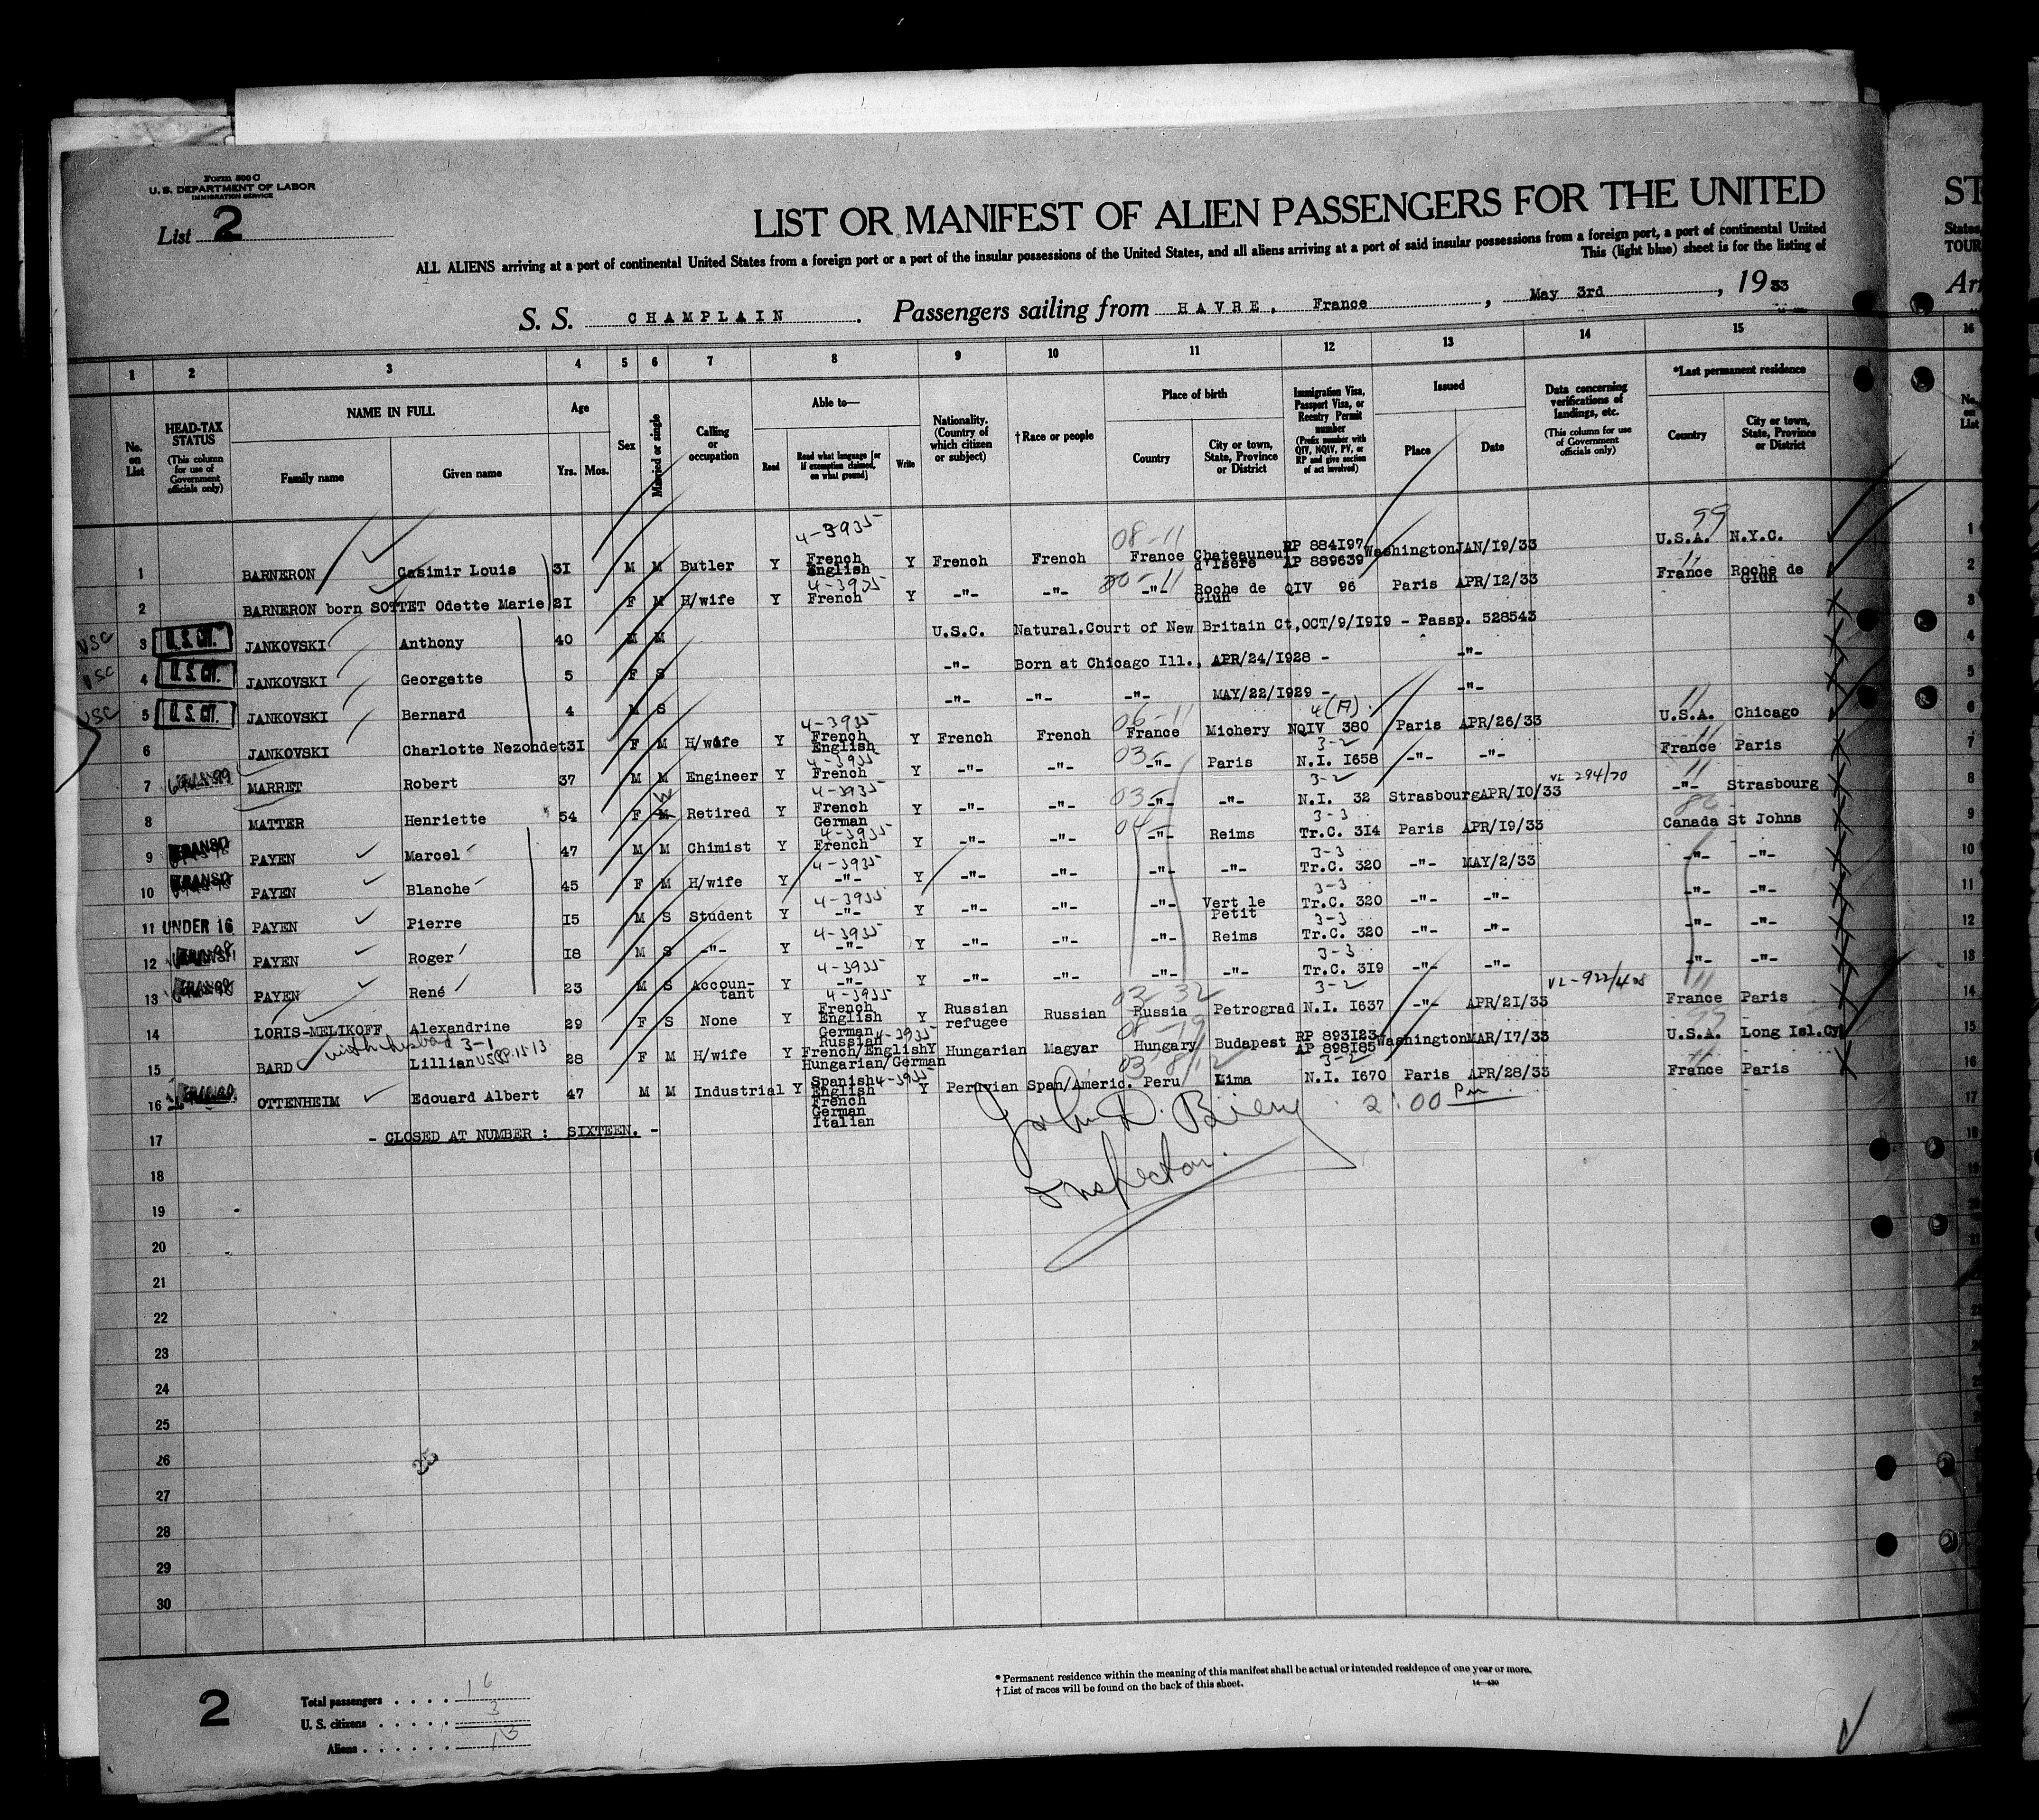 Form 500 C
U. S. DEPARTMENT OF LABOR
IMMIGRATION SERVICE
List 2
LIST OR MANIFEST OF ALIEN PASSENGERS FOR THE UNITED
ST
ALL ALIENS arriving at a port of continental United States from a foreign port or a port of the insular possessions of the United States, and all aliens arriving at a port of said insular possessions from a foreign port, a port of continental United
States,
This (light blue) sheet is for the listing of
TOUR
S. S. CHAMPLAIN. Passengers sailing from HAVRE, France, May 3rd, 1933
Arr
1 2 3 4 5 6 7 8 9 10 11 12 13 14 15 16
No. on List
HEAD-TAX STATUS (This column for use of Government officials only)
NAME IN FULL
Family name
Given name
Age
Yrs. Mos.
Sex
Married or single
Calling or occupation
Able to—
Read
Read what language [or if exemption claimed, on what ground]
Write
Nationality. (Country of which citizen or subject)
† Race or people
Place of birth
Country
City or town, State, Province or District
Immigration Visa, Passport Visa, or Reentry Permit number (Prefix number with QIV, NQIV, PV, or RP and give section of act involved)
Issued
Place
Date
Data concerning verifications of landings, etc. (This column for use of Government officials only)
*Last permanent residence
Country
City or town, State, Province or District
No. on List
1 BARNERON Casimir Louis 31 M M Butler Y 4-3935 French English Y French French 08-11 France Chateauneuf d'Isère RP 884197 AP 889639 Washington JAN/19/33 99 U.S.A. N.Y.C. 1
2 BARNERON born SOTTET Odette Marie 21 F M H/wife Y 4-3935 French Y -"- -"- -"- Roche de Glun QIV 96 Paris APR/12/33 11 France Roche de Glun 2
USC 3 U.S. CIT. JANKOVSKI Anthony 40 M M U.S.C. Natural.Court of New Britain Ct,OCT/9/1919 - Passp. 528543 3
USC 4 U.S. CIT. JANKOVSKI Georgette 5 F S -"- Born at Chicago Ill., APR/24/1928 - -"- 4
USC 5 U.S. CIT. JANKOVSKI Bernard 4 M S -"- -"- -"- MAY/22/1929 - -"- 5
6 JANKOVSKI Charlotte Nezondet 31 F M H/wife Y 4-3935 French English Y French French 06-11 France Michery 4(A) NQIV 380 Paris APR/26/33 11 U.S.A. Chicago 6
7 MARRET Robert 37 M M Engineer Y 4-3935 French Y -"- -"- 03- -"- Paris 3-2 N.I. 1658 -"- -"- 11 France Paris 7
8 MATTER Henriette 54 F M W Retired Y 4-3935 French German Y -"- -"- 03- -"- -"- 3-2 N.I. 32 Strasbourg APR/10/33 VL 294/70 11 -"- Strasbourg 8
9 PAYEN Marcel 47 M M Chimist Y 4-3935 French Y -"- -"- 04- -"- Reims 3-3 Tr.C. 314 Paris APR/19/33 Canada St Johns 9
10 PAYEN Blanche 45 F M H/wife Y 4-3935 -"- Y -"- -"- -"- -"- 3-3 Tr.C. 320 -"- MAY/2/33 -"- -"- 10
11 UNDER 16 PAYEN Pierre 15 M S Student Y 4-3935 -"- Y -"- -"- -"- Vert le Petit 3-3 Tr.C. 320 -"- -"- -"- -"- 11
12 PAYEN Roger 18 M S -"- Y 4-3935 -"- Y -"- -"- -"- Reims 3-3 Tr.C. 320 -"- -"- -"- -"- 12
13 PAYEN René 23 M S Accountant Y 4-3935 -"- Y -"- -"- -"- -"- 3-3 Tr.C. 319 -"- -"- -"- -"- 13
14 LORIS-MELIKOFF Alexandrine 29 F S None Y 4-3935 French English German Russian Y Russian refugee Russian 03-32 Russia Petrograd 3-2 N.I. 1637 -"- APR/21/33 11 France Paris 14
15 BARD with husband 3-1 Lillian 28 F M H/wife Y 4-3935 French/English Hungarian/German Y Hungarian Magyar 08-19 Hungary Budapest RP 893123 AP 898185 Washington MAR/17/33 99 U.S.A. Long Isl.Cy 15
16 OTTENHEIM Edouard Albert 47 M M Industrial Y 4-3935 Spanish English French German Italian Y Peruvian Span/Americ. Peru Lima 3-2 N.I. 1670 Paris APR/28/33 11 France Paris 16
17 - CLOSED AT NUMBER : SIXTEEN. - 17
John D. Biery 2:00 Pm
Inspector.
18
19
20
21
22
23
24
25
26
27
28
29
30
2
Total passengers 16
U. S. citizens 3
Aliens 13
* Permanent residence within the meaning of this manifest shall be actual or intended residence of one year or more.
† List of races will be found on the back of this sheet.
14—430